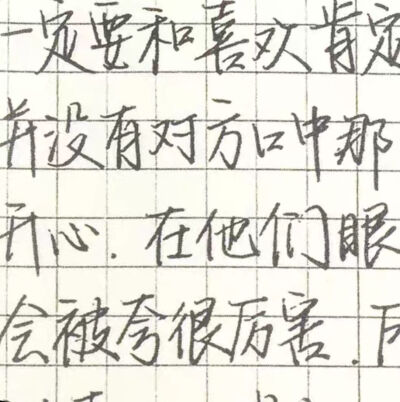 一定要和喜欢肯定
并没有对方口中那
开心.在他们眼
会被夸很厉害.